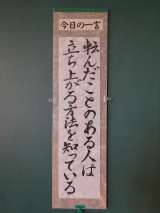 今日の一言
転んだことのある人は
立ち上がる方法を知っている